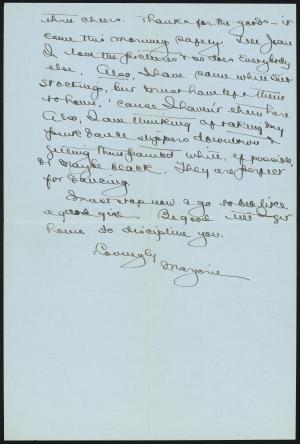 three cheers. Thanks for the goods – it
came this morning safely. Tell Jean
I love the pictures & so does everybody
else. Also, I have some white silk
stockings, but must have left them
at home, 'cause I haven't them here
Also, I am thinking of taking my
pink dance slippers downtown &
getting them painted white, if possible
or maybe black. They are perfect
for dancing.
I must stop now & go to bed like
a good girl. Be good till I get
home to discipline you.
Lovingly
Marjorie